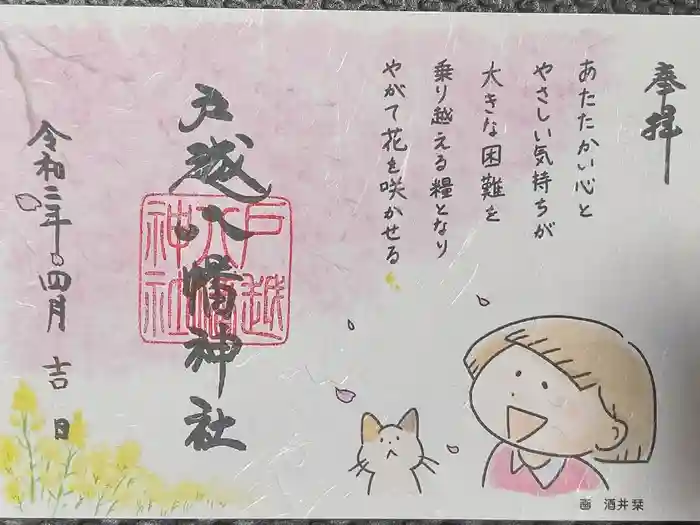 奉拝
あたたかい心と
やさしい気持ちが
大きな困難を
乗り越える糧となり
やがて花を咲かせる
戸越八幡神社
戸越八幡神社
令和二年四月吉日
画 酒井栞